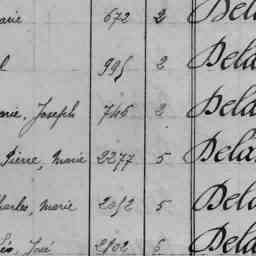 arie 672 2 Dela
l 995 2 Dela
arie, Joseph 745 2 Dela
Pierre, Marie 2277 5 Dela
harles, marie 2052 5 Dela
José 2102 5 Dela